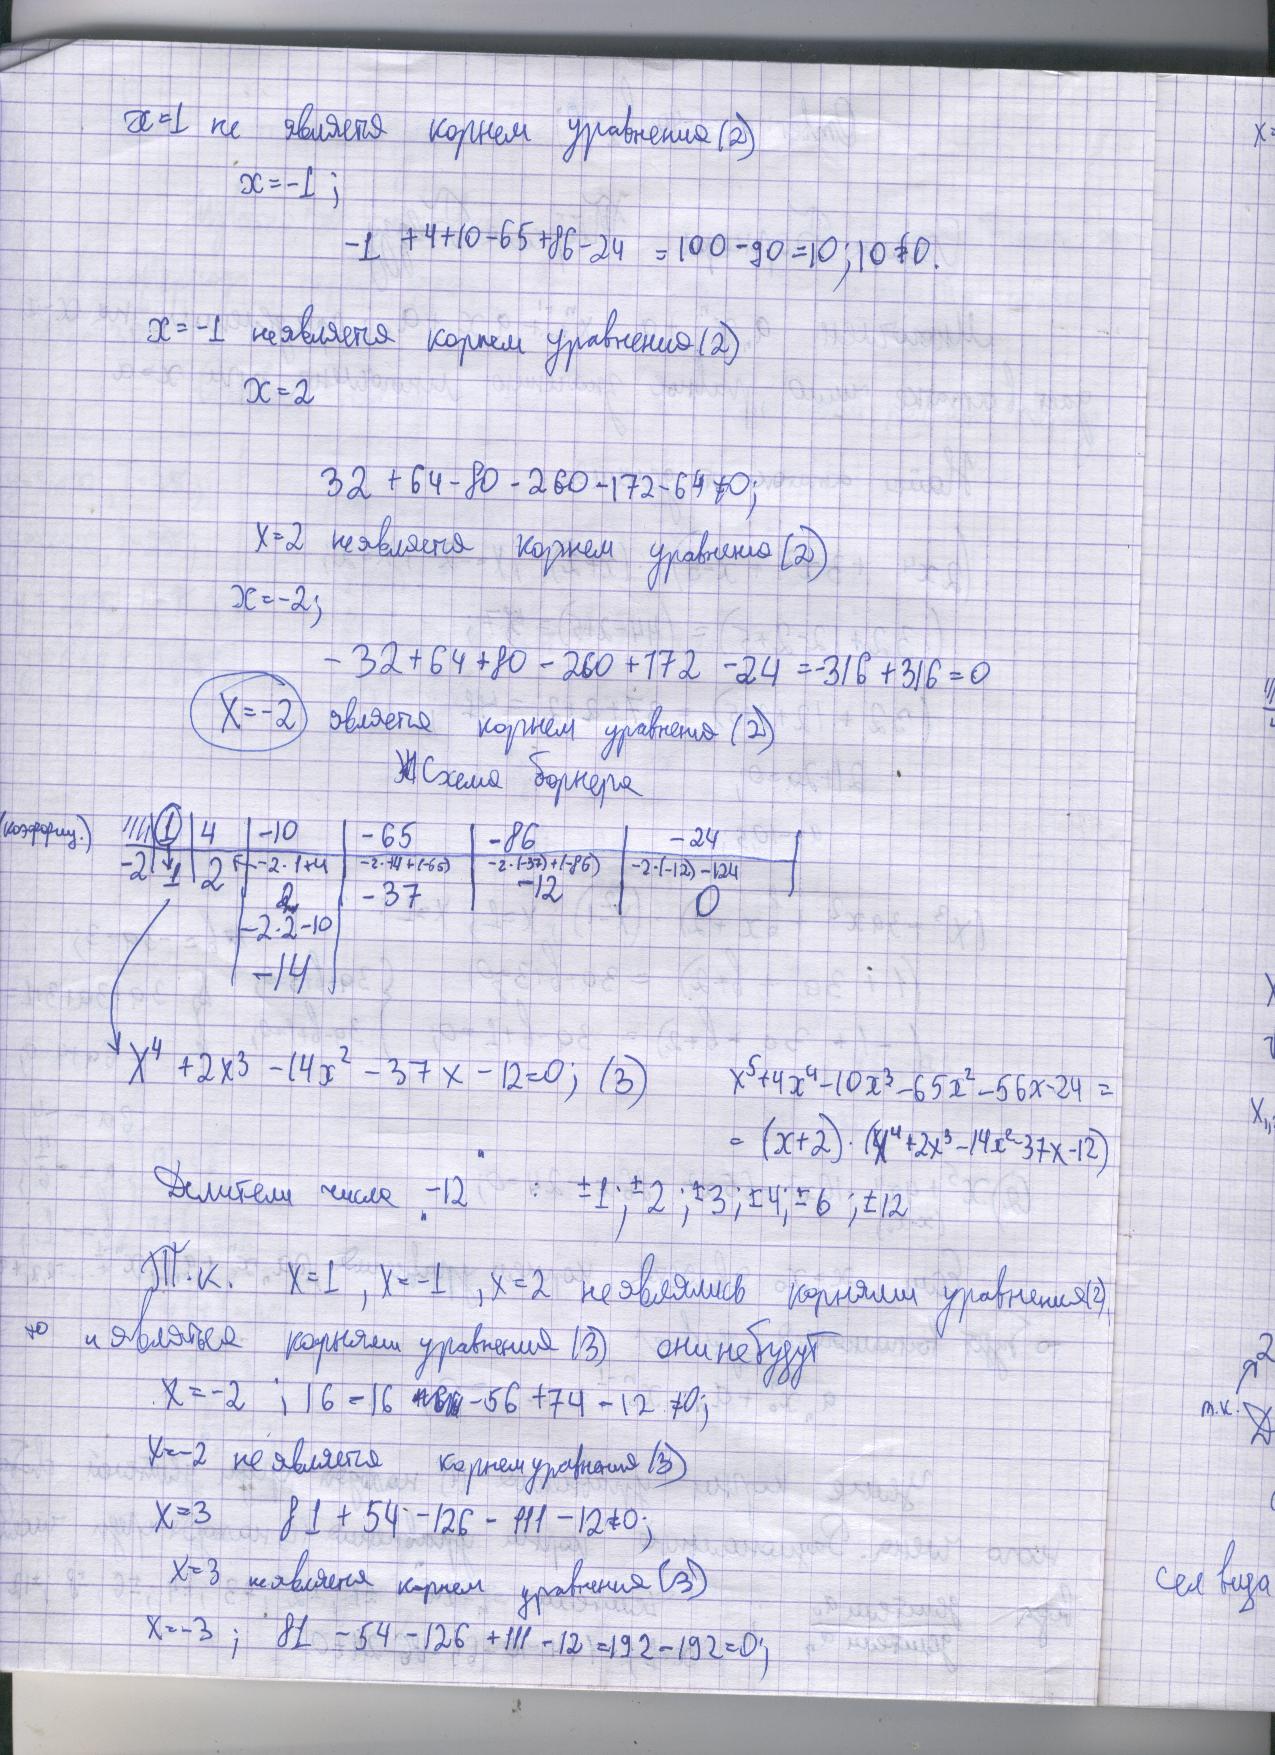 x=1 не является корнем уравнения (2)
x=-1;
-1 +4+10-65+86-24 =100-90=10; 10≠0.
x=-1 не является корнем уравнения (2)
x=2
32+64-80-260-172-64≠0;
x=2 не является корнем уравнения (2)
x=-2;
-32+64+80-260+172-24=-316+316=0
x=-2 является корнем уравнения (2)
Схема борнера
(коэффиц.) 1 | 4 | -10 | -65 | -86 | -24
-2 | 1 | 2 | -2·1+4 | -2·14+(-65) | -2·(-37)+(-86) | -2·(-12)-124
2 | -37 | -12 | 0
-2·2-10
-14
x⁴+2x³-14x²-37x-12=0; (3) x⁵+4x⁴-10x³-65x²-56x-24=
=(x+2)·(x⁴+2x³-14x²-37x-12)
Делители числа "-12" : ±1; ±2; ±3; ±4; ±6; ±12
Т.к. x=1, x=-1, x=2 не являлись корнями уравнения(2),
то и являться корнями уравнения (3) они не будут
x=-2 ; 16-16 -56+74-12≠0;
x=-2 не является корнем уравнения (3)
x=3 81+54-126-111-12≠0;
x=3 не является корнем уравнения (3)
x=-3; 81-54-126+111-12=192-192=0;
x=
2
т.к.
вида